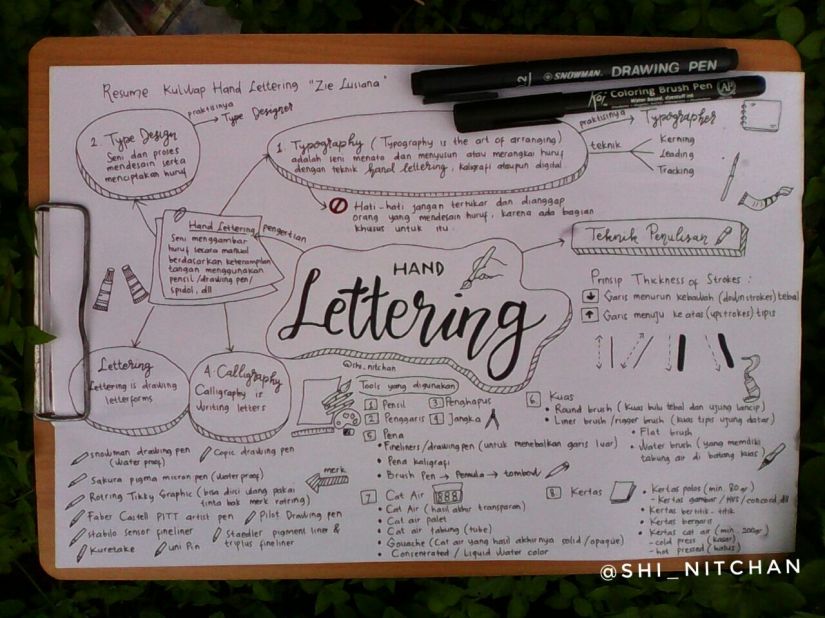 Resume Kulwap Hand Lettering "Zie Lusiana"
SNOWMAN DRAWING PEN
Koi Coloring Brush Pen AP
Water based, dyestuff ink
2. Type Design
Seni dan proses
mendesain serta
menciptakan huruf
praktisinya
Type Designer
1. Typography (Typography is the art of arranging)
adalah seni menata dan menyusun atau merangkai huruf
dengan teknik hand lettering, kaligrafi ataupun digital
praktisinya
Typographer
teknik
Kerning
Leading
Tracking
Hati-hati jangan tertukar dan dianggap
orang yang mendesain huruf, karena ada bagian
khusus untuk itu.
Hand Lettering
Seni menggambar
huruf secara manual
berdasarkan keterampilan
tangan menggunakan
pensil/drawing pen/
spidol, dll
pengertian
HAND
Lettering
@shi_nitchan
Teknik Penulisan
Prinsip Thickness of Strokes :
Garis menurun kebawah (downstrokes) tebal
Garis menuju ke atas (upstrokes) tipis
Lettering
Lettering is drawing
letterforms
4. Calligraphy
Calligraphy is
writing letters
Tools yang digunakan
1 Pensil
2 Penggaris
3 Penghapus
4 Jangka
5 Pena
Fineliners/drawing pen (untuk menebalkan garis luar)
Pena kaligrafi
Brush Pen → Pemula → tombow
6 Kuas
Round brush (kuas bulu tebal dan ujung lancip)
Liner brush/rigger brush (kuas tipis ujung datar)
Flat brush
Water brush (yang memiliki
tabung air di batang kuas)
merk
snowman drawing pen
(waterproof)
Copic drawing pen
Sakura pigma micron pen (waterproof)
Rotring Tikky Graphic (bisa diisi ulang pakai
tinta bak merk rotring)
Faber Castell PITT artist pen
Pilot Drawing pen
Stabilo sensor fineliner
Staedler pigment liner &
triplus fineliner
Kuretake
uni Pin
7 Cat Air
Cat Air (hasil akhir transparan)
Cat air palet
Cat air tabung (tube)
Gouache (Cat air yang hasil akhirnya solid/opaque)
Consentrated / Liquid Water color
8 Kertas
Kertas polos (min. 80 gr)
- Kertas gambar / HVS / concord, dll
Kertas bertitik-titik
Kertas bergaris
Kertas cat air (min. 200gr)
- cold press (kasar)
- hot pressed (halus)
@SHI_NITCHAN